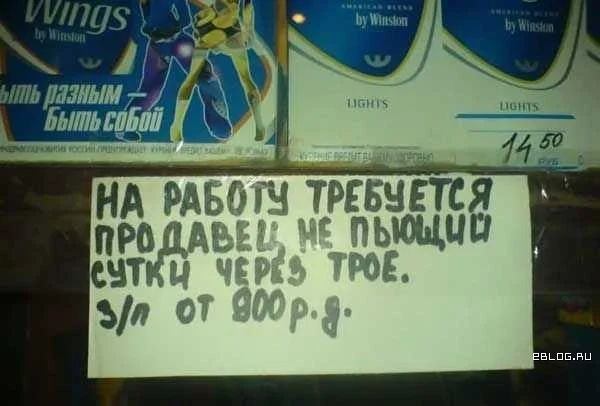 Wings
by Winston
ЫТЬ разным –
Быть собой
AMERICAN BLEND
by Winston
LIGHTS
AMERICAN BLEND
by Winston
LIGHTS
14 50
РУБ
НА РАБОТУ ТРЕБУЕТСЯ
ПРОДАВЕЦ НЕ ПЬЮЩИЙ
СУТКИ ЧЕРЕЗ ТРОЕ.
З/П ОТ 800 р.д.
2BLOG.RU